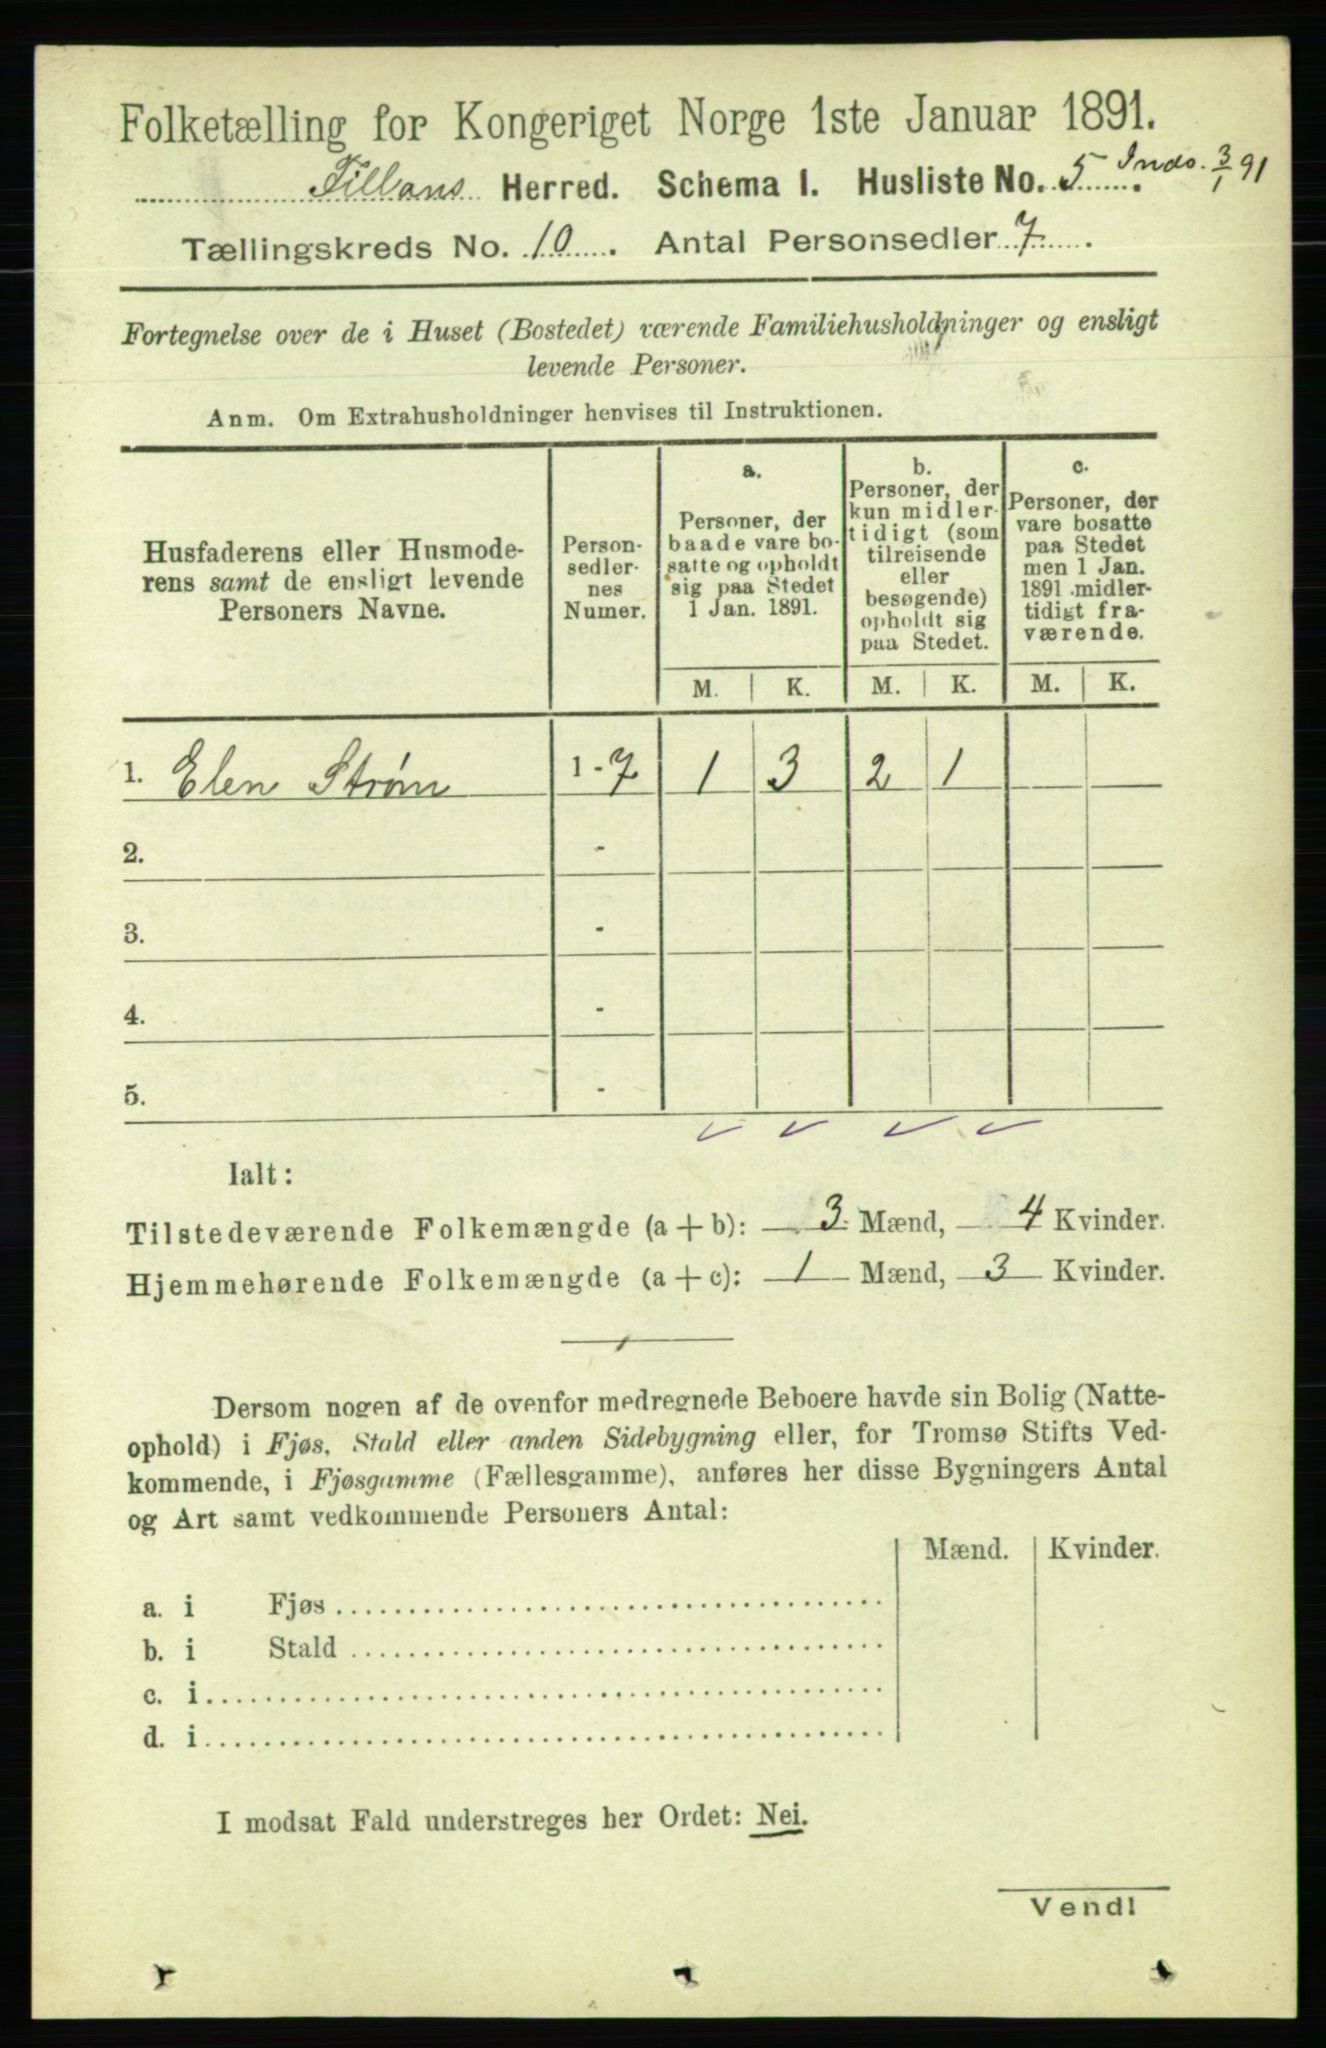 Folketælling for Kongeriget Norge 1ste Januar 1891.
Fillans Herred. Schema 1. Husliste No. 5. Inds. 3/1 91
Tællingskreds No. 10. Antal Personsedler 7.
Fortegnelse over de i Huset (Bostedet) værende Familiehusholdninger og ensligt
levende Personer.
Anm. Om Extrahusholdninger henvises til Instruktionen.
Husfaderens eller Husmode-
rens samt de ensligt levende
Personers Navne.
Person-
sedler-
nes
Numer.
a.
Personer, der
baade vare bo-
satte og opholdt
sig paa Stedet
1 Jan. 1891.
b.
Personer, der
kun midler-
tidigt (som
tilreisende
eller
besøgende)
opholdt sig
paa Stedet.
c.
Personer, der
vare bosatte
paa Stedet
men 1 Jan.
1891 midler-
tidigt fra-
værende.
M. K. M. K. M. K.
1. Elen Strøm 1 - 7 1 3 2 1
2. -
3. -
4. -
5. -
Ialt:
Tilstedeværende Folkemængde (a + b): 3 Mænd, 4 Kvinder.
Hjemmehørende Folkemængde (a + c): 1 Mænd, 3 Kvinder.
Dersom nogen af de ovenfor medregnede Beboere havde sin Bolig (Natte-
ophold) i Fjøs, Stald eller anden Sidebygning eller, for Tromsø Stifts Ved-
kommende, i Fjøsgamme (Fællesgamme), anføres her disse Bygningers Antal
og Art samt vedkommende Personers Antal:
Mænd. Kvinder.
a. i Fjøs
b. i Stald
c. i
d. i
I modsat Fald understreges her Ordet: Nei.
Vend!